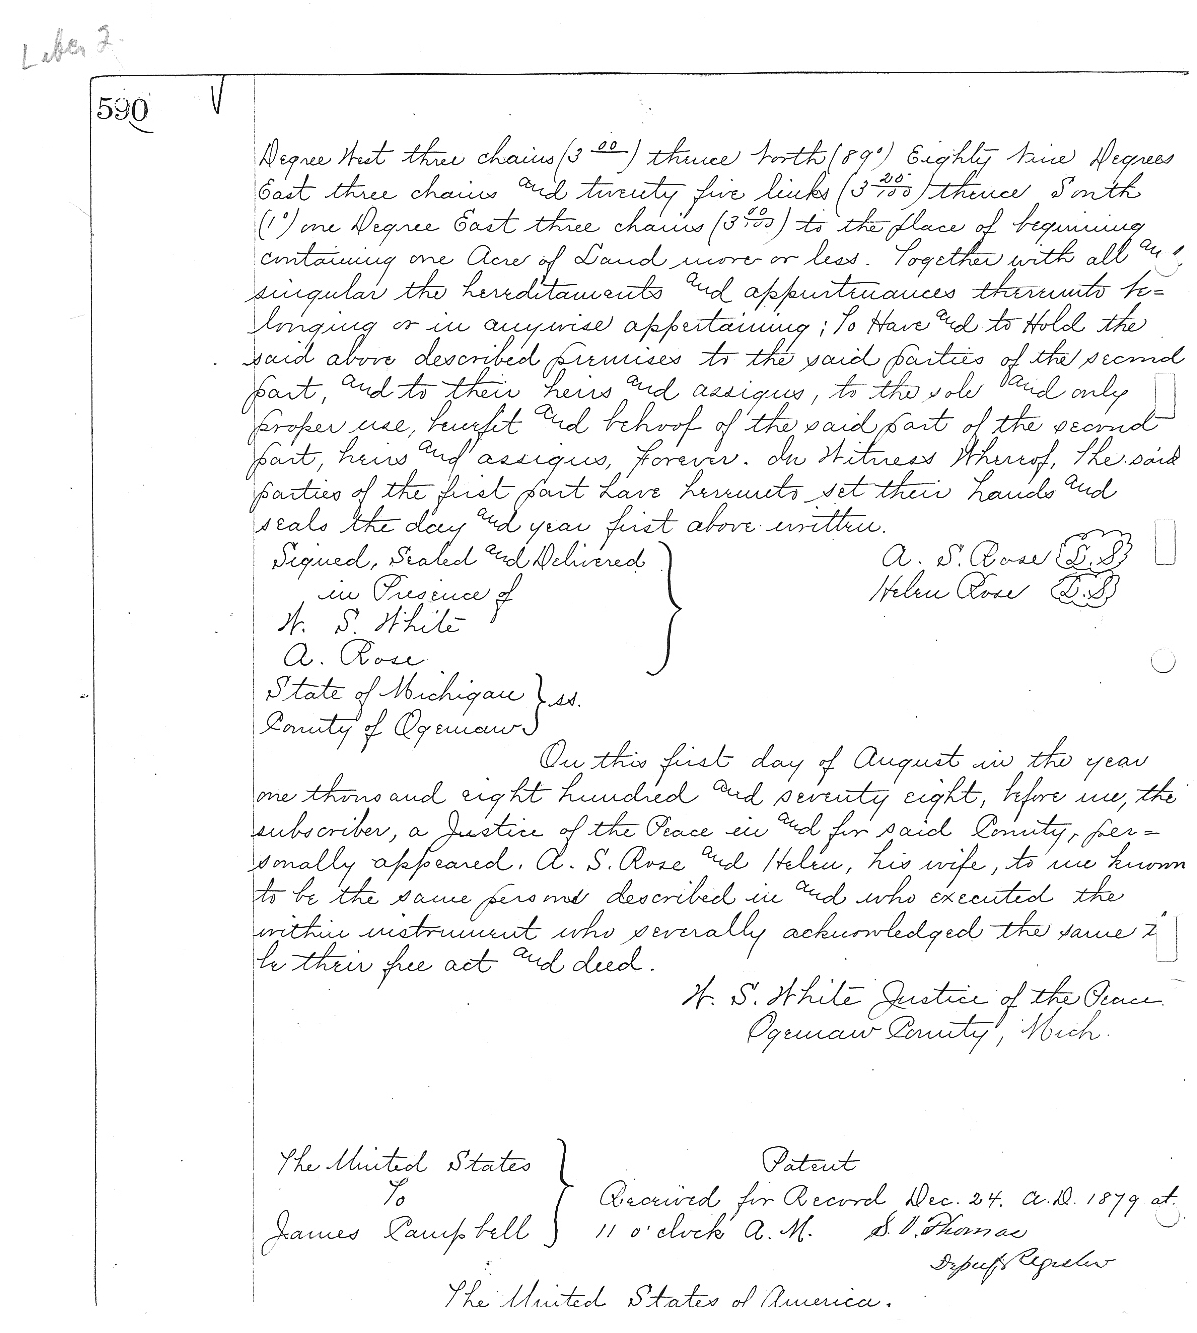 Liber 2.
590
Degree West three chains (3 00) thence North (89°) Eighty Nine Degrees
East three chains and twenty five links (3 25/100) thence South
(1°) one Degree East three chains (3 00/100) to the place of beginning
containing one Acre of Land more or less. Together with all and
singular the hereditaments and appurtenances thereunto be=
longing or in anywise appertaining; To Have and to Hold the
said above described premises to the said parties of the second
part, and to their heirs and assigns, to the sole and only
proper use, benefit and behoof of the said part of the second
part, heirs and assigns, Forever. In Witness Whereof, The said
parties of the first part have hereunto set their hands and
seals the day and year first above written.
Signed, Sealed and Delivered A. S. Rose L.S
in Presence of Helen Rose L.S
W. S. White
A. Rose
State of Michigan } ss.
County of Ogemaw
On this first day of August in the year
one thousand eight hundred and seventy eight, before me, the
subscriber, a Justice of the Peace in and for said County, per=
sonally appeared. A. S. Rose and Helen, his wife, to me known
to be the same persons described in and who executed the
within instrument who severally acknowledged the same t
be their free act and deed.
W. S. White Justice of the Peace
Ogemaw County, Mich.
The United States Patent
To Received for Record Dec. 24. A.D. 1879 at
James Campbell 11 o'clock A. M. S. V. Thomas
Deputy Register
The United States of America.